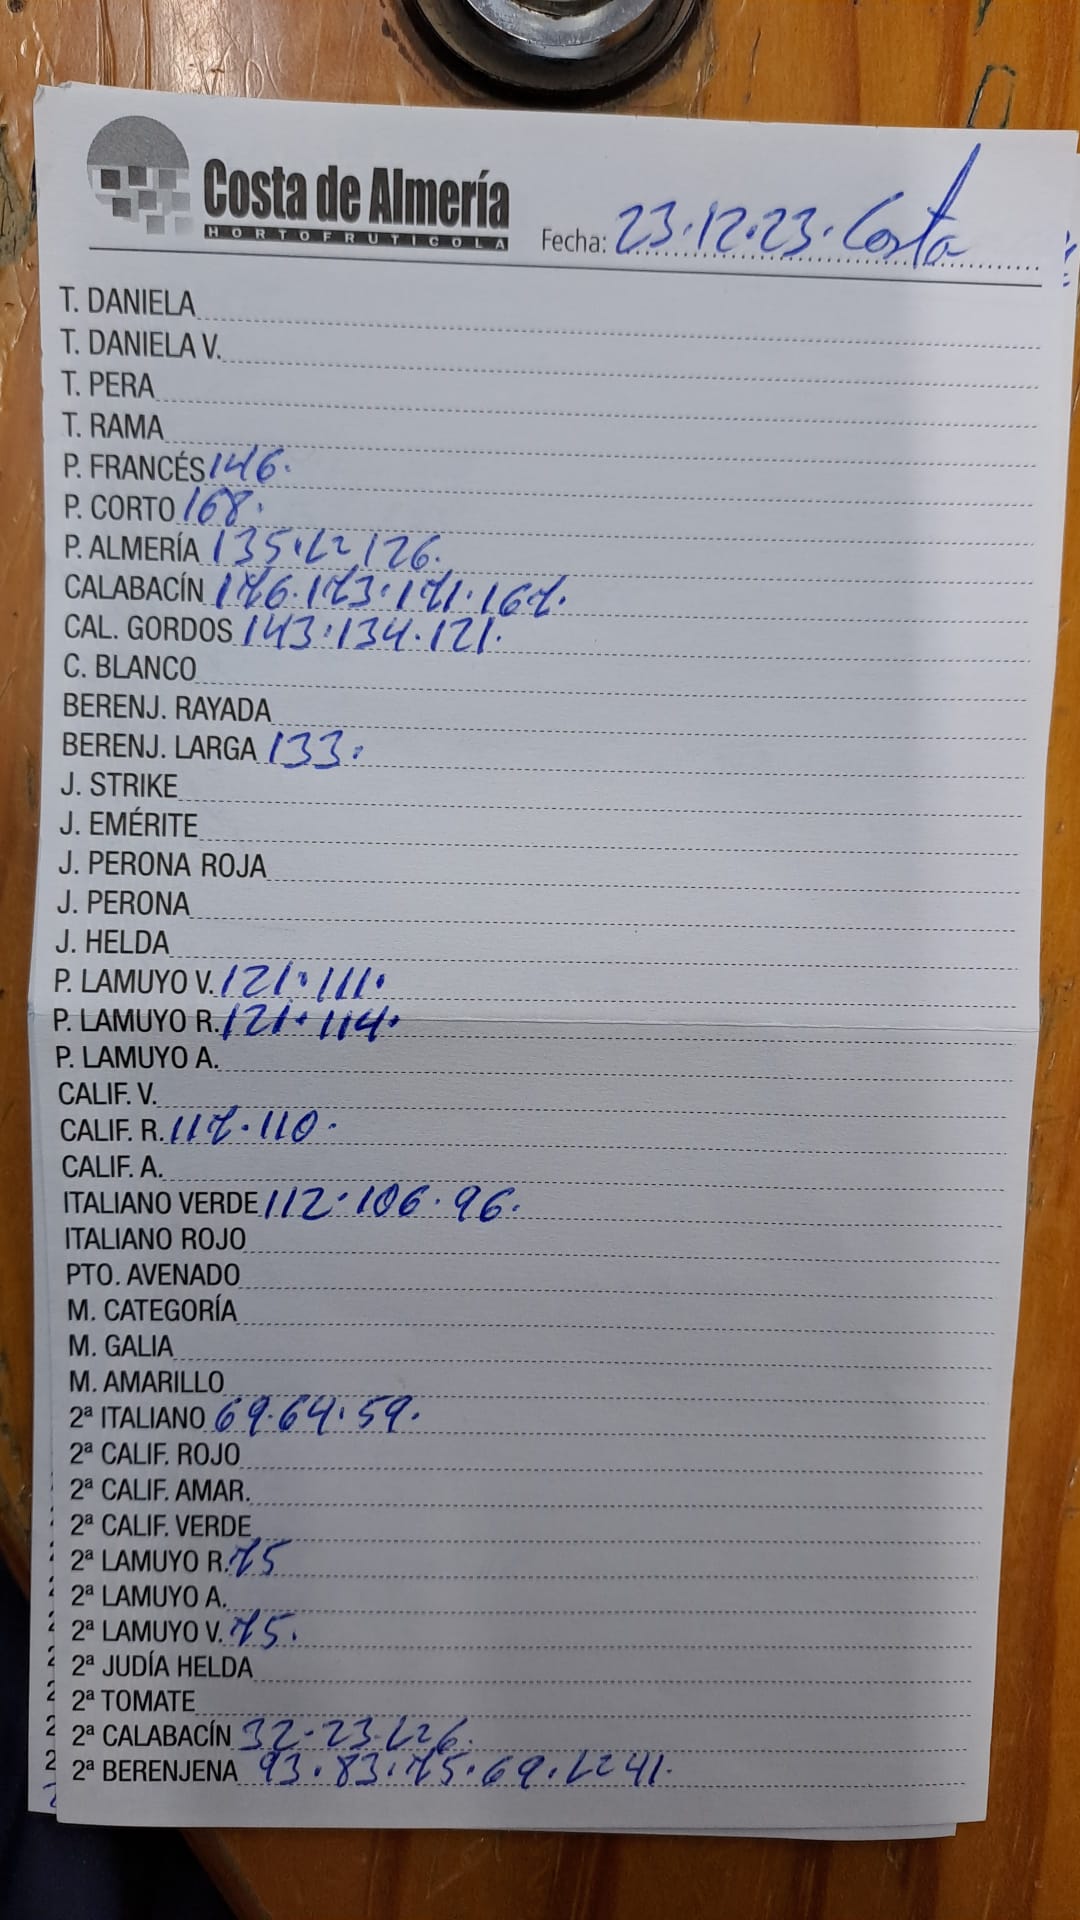 Costa de Almería
HORTOFRUTICOLA
Fecha: 23.12.23. Costa
T. DANIELA
T. DANIELA V.
T. PERA
T. RAMA
P. FRANCÉS 146.
P. CORTO 168.
P. ALMERÍA 135. L= 126.
CALABACÍN 176. 173. 171. 167.
CAL. GORDOS 143. 134. 121.
C. BLANCO
BERENJ. RAYADA
BERENJ. LARGA 133.
J. STRIKE
J. EMÉRITE
J. PERONA ROJA
J. PERONA
J. HELDA
P. LAMUYO V. 121. 111.
P. LAMUYO R. 121. 114.
P. LAMUYO A.
CALIF. V.
CALIF. R. 117. 110.
CALIF. A.
ITALIANO VERDE 112. 106. 96.
ITALIANO ROJO
PTO. AVENADO
M. CATEGORÍA
M. GALIA
M. AMARILLO
2ª ITALIANO 69. 64. 59.
2ª CALIF. ROJO
2ª CALIF. AMAR.
2ª CALIF. VERDE
2ª LAMUYO R. 75
2ª LAMUYO A.
2ª LAMUYO V. 75.
2ª JUDÍA HELDA
2ª TOMATE
2ª CALABACÍN 32. 23.
2ª BERENJENA 93. 83. 75. 69. L= 41.